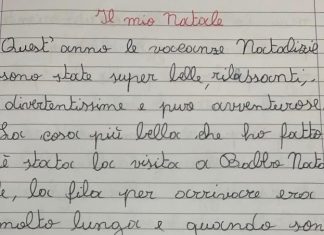 Il mio Natale
Quest' anno le vacanze Natalizie
sono state super belle, rilassanti,
divertentissime e pure avventurose.
La cosa più bella che ho fatto
è stata la visita a Babbo Nata
le, la fila per arrivare era
molto lunga e quando son